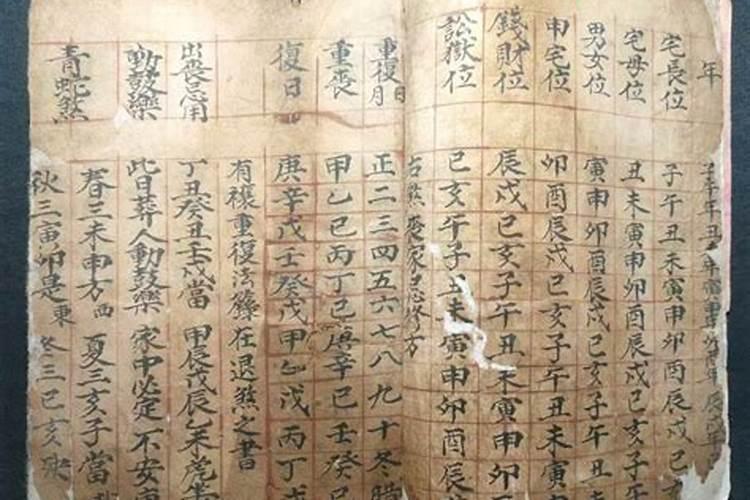 年 子午年丑未年寅申年卯酉年辰戌年
宅長位 子午丑未寅申卯酉辰戌巳
宅母位 丑未寅申卯酉辰戌巳亥子午
男女位 寅申卯酉辰戌巳亥子午丑
中宅位 卯酉辰戌巳亥子午丑未寅
錢財位 辰戌巳亥子午丑未寅申卯
訟獄位 巳亥午子丑未寅申卯酉辰
占煞 喪家忌修方
重復日月 正二三四五六七八九十冬臘
重喪 甲乙巳丙丁巳庚辛巳壬癸巳
復日 庚辛戊壬癸戊甲乙戊丙丁戊
有禳重復法籙在退煞之書
出喪忌用 丁丑癸丑壬戌當 甲辰戊辰乙未
動鼓樂 此日葬人動鼓樂 家中必定不安
青蛇煞 春三未申方西 夏三亥子當
秋三寅卯是東 冬三巳亥